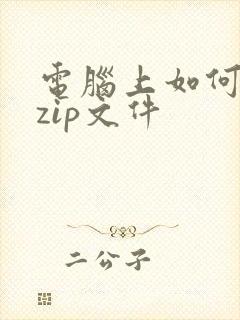 電腦上如何
zip文件
二公子